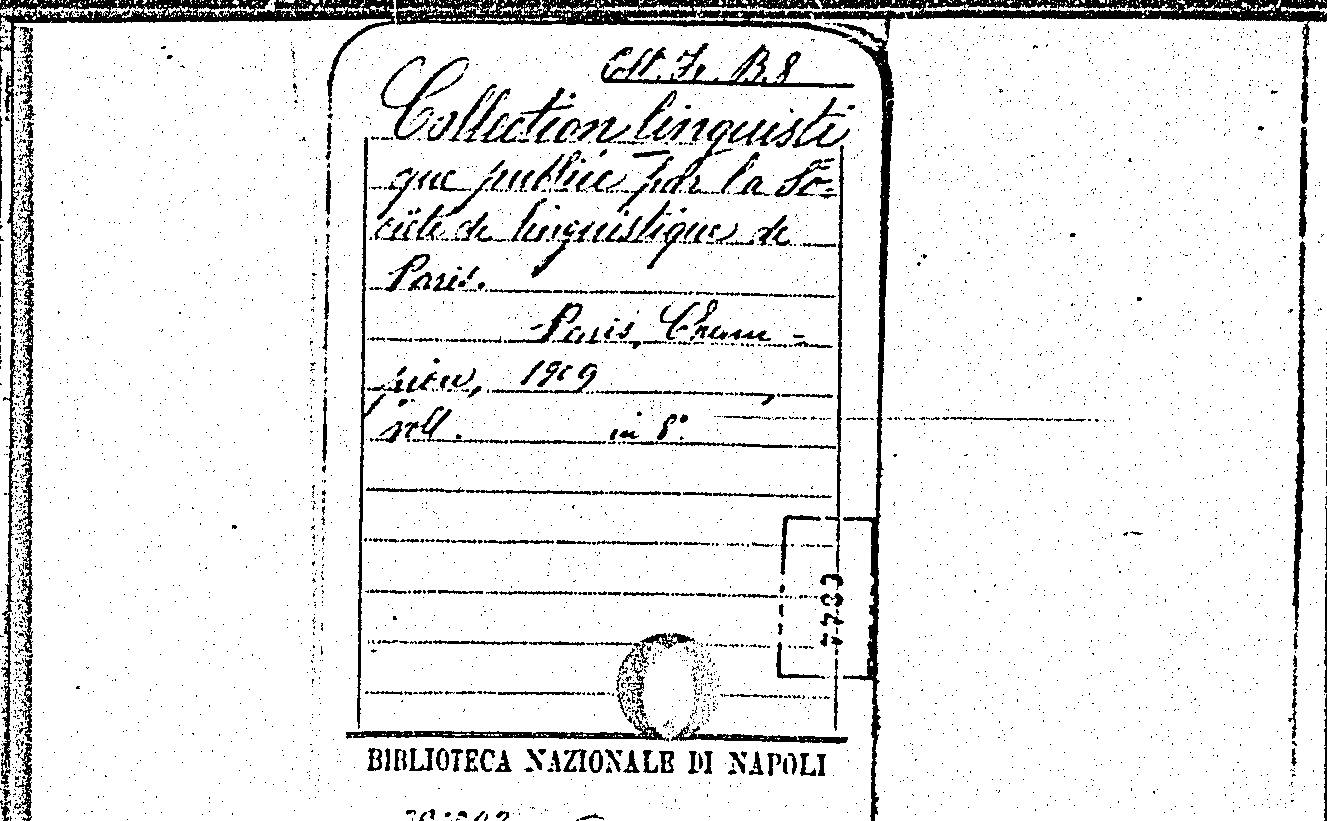 Coll. Fr. B.8
Collection linguisti
que publiée par la So-
ciété de linguistique de
Paris.
Paris, Cham-
pion, 1909
voll. in 8°.
BIBLIOTECA NAZIONALE DI NAPOLI